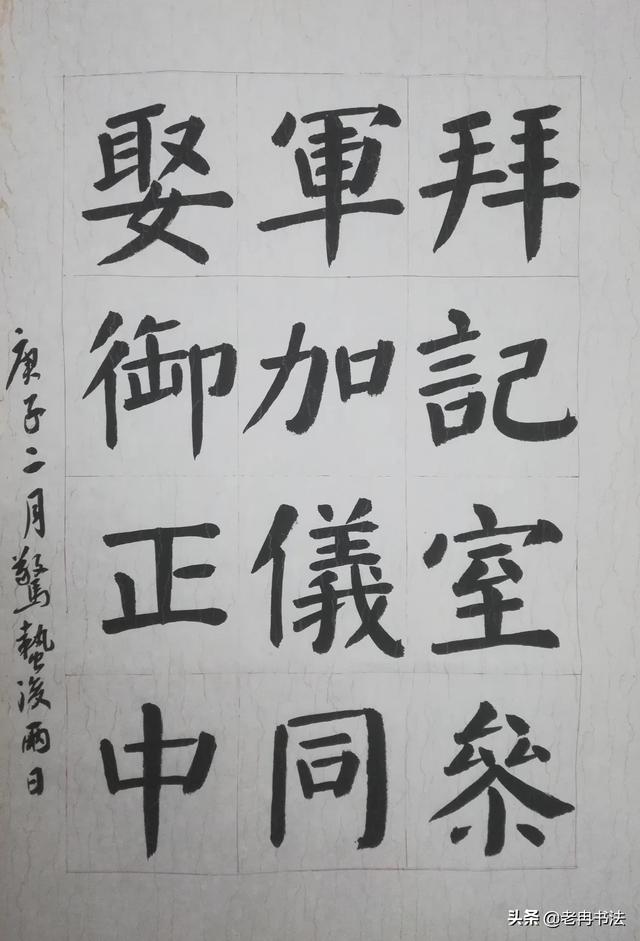 拜記室叅
軍加儀同
娶御正中
庚子二月驚蟄後兩日
头条 @老冉书法